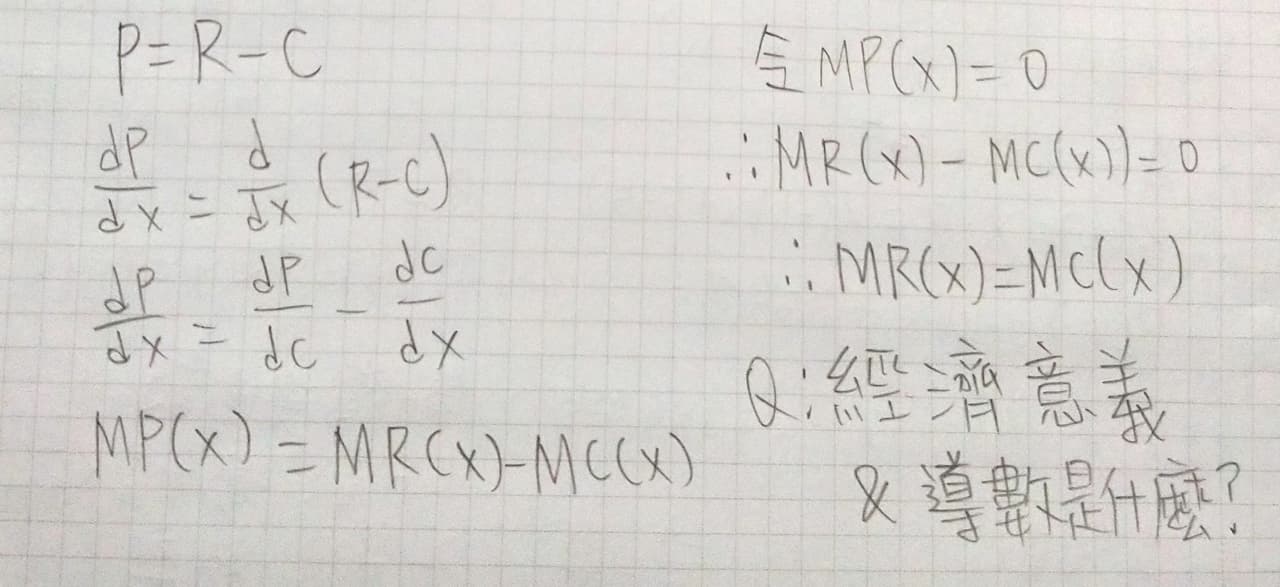 P=R-C
dP/dx = d/dx (R-C)
dP/dx = dP/dc - dc/dx
MP(x) = MR(x)-MC(x)
令 MP(x)=0
∴ MR(x) - MC(x))=0
∴ MR(x)=MC(x)
Q:經濟意義
& 導數是什麼?